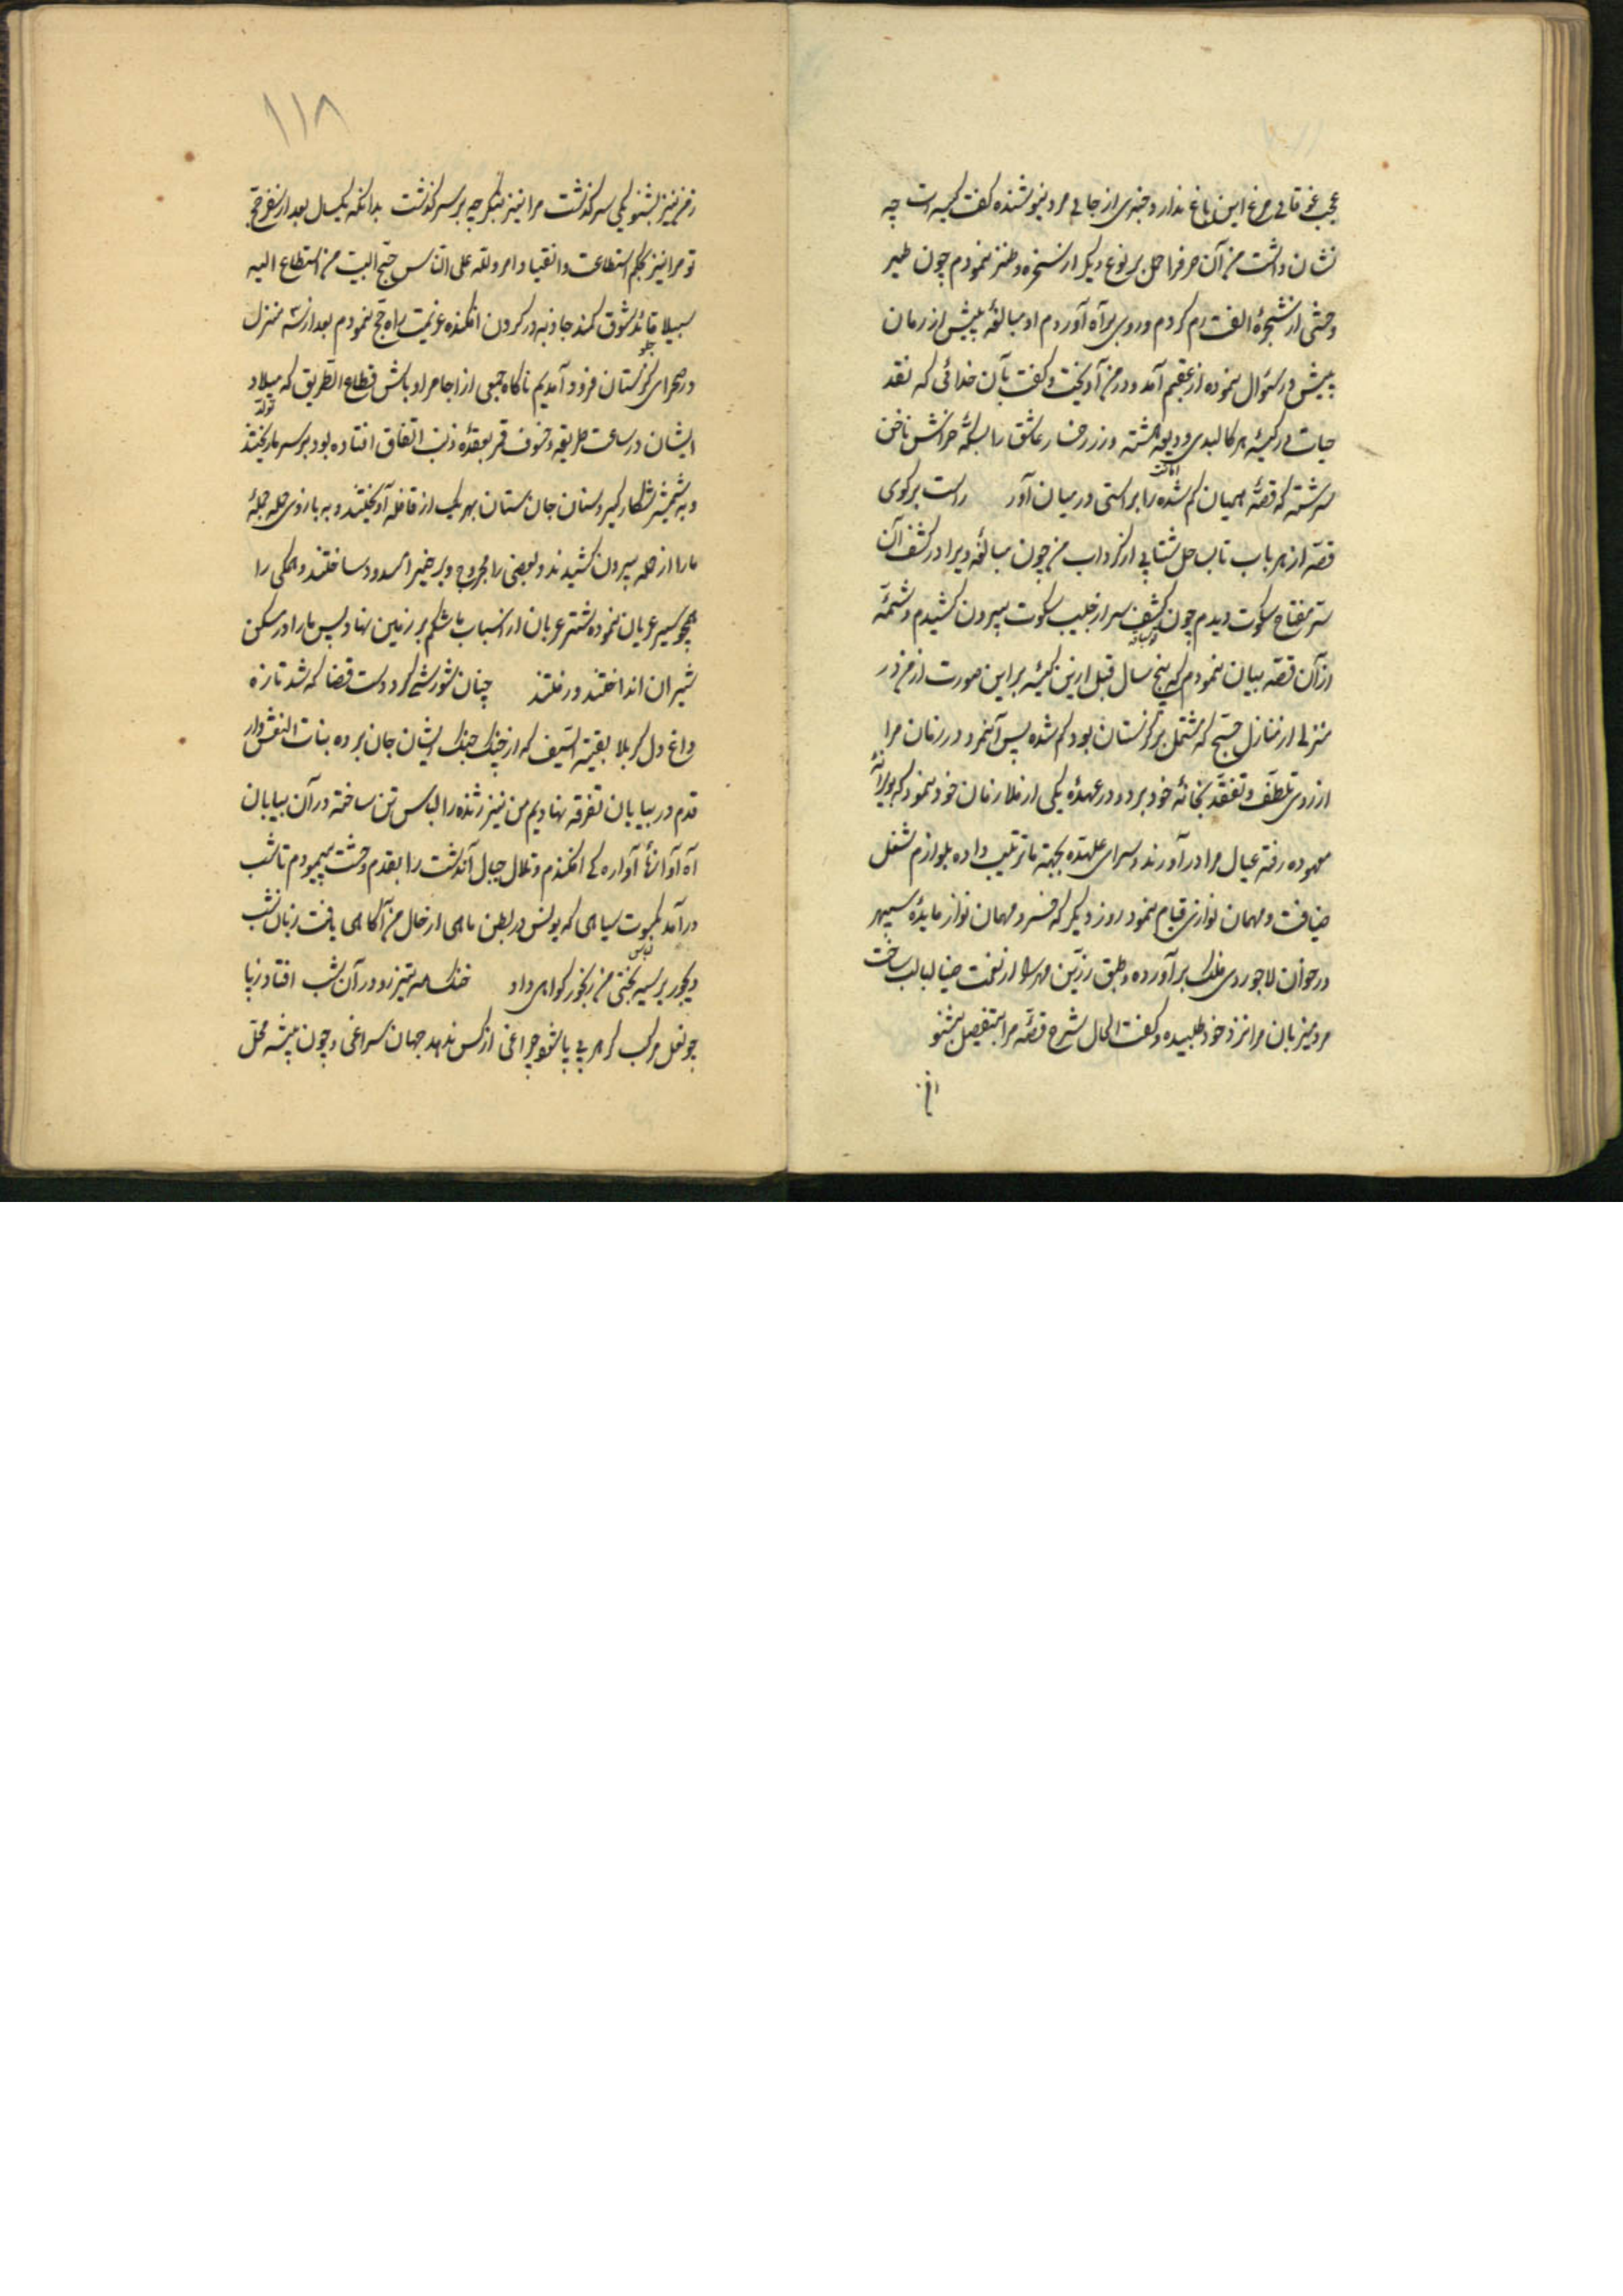 عجب نوائی مرغ این باغ ندارد خبری از جائی مرد نیوشنده گفت کیسه‌ات چه
نشان داشت من آن حرف را حمل بر نوع دیگر از سخره و طنز نمودم چون طیر
وحشی از شجرهٔ الفت رم کردم و روی براه آوردم او مبالغه بیش از زمان
پیش در سئوال نموده از عقبم آمد و در من آویخت و گفت بآن خدائی که نقد
حیات در کیسهٔ هر کالبدی ودیعه هشته و زر رخسار عاشق را بسکهٔ خراش ناخن
امانت
سرشته که قصهٔ همیان گم شده را براستی در میان آور راست برگوی
قصه از هر باب تا بساحل شتابی از گرداب من چون مبالغه ویرا در کشف آن
ستر مفتاح سکوت دیدم چون کشف سر از جیب سکوت بیرون کشیدم و شمّهٔ
از آن قصه بیان نمودم که پنج سال قبل ازین کیسهٔ بر این صورت از من در
منزلی از منازل حج که مشتمل بر گزستان بود گم شده پس آنمرد در زمان مرا
از روی تلطف و تفقد بخانهٔ خود برد و در عهدهٔ یکی از ملازمان خود نمود که بویرانهٔ
معهوده رفته عیال مرا در آورند و سرای علیحده بجهة ما ترتیب داده بلوازم شغل
ضیافت و مهمان نوازی قیام نمود روز دیگر که خسرو مهمان نواز مایدهٔ سپهر
در خوان لاجوردی فلک بر آورده و طبق زرین مهر را از نعمت ضیا لبالب ساخت
مرد میزبان مرا نزد خود طلبیده و گفت الحال شرح قصهٔ مرا بتفصیل بشنو
از من
۱۱۸
ز من نیز بشنو یکی سرگذشت مرا نیز بنگر چه بر سر گذشت بدانکه یکسال بعد از سفر حج
تو مرا نیز بحکم استطاعت و انقیاد امر ولله علی الناس حج البیت من استطاع الیه
سبیلا قائد شوق کمند جاذبه در گردن افکنده عزیمت راه حج نمودم بعد از سه منزل
در صحرای گزستان فرود آمدیم ناگاه جمعی از اجامر و اوباش قطاع الطریق که میلاد
تولد
ایشان در ساعت طریقه و خسوف قمر بعقدهٔ ذنب اتفاق افتاده بود بر سر ما ریختند
و به شمشیر شکار گیر و سنان جان ستان بهر یک از قافله آویختند و به بازوی حمله جملهٔ
ما را از حمله بیرون کشیدند و بعضی را مجروح و بر خیر را مسدود ساختند و همگی را
همچو سیر عریان نموده شتر عریان از اسباب با شکم بر زمین نهاد و پس ما را در مسکن
شیران انداختند و رفتند چنان شورشی کرد دست قضا که شد تازه
داغ دل کربلا بقیة السیف که از چنگ جنگ ایشان جان برده بنات النعش وار
قدم در بیابان تفرقه نهادیم من نیز ژنده را لباس تن ساخته در آن بیابان
آواره افکندم و تلال جبال آندشت را بقدم وحشت میپیمودم تا شب
در آمد بکسوت سیاهی که یونس در بطن ماهی از حال من آگاهی یافت زبان شب
لباس
دیجور بر سیه بختی من رنجور گواهی داد خنگ مه تیز رو در آن شب افتاد ز پا
چو نعل مرکب گر هر پی پا شود چراغی از کس ندهد جهان سراغی و چون پشه محل